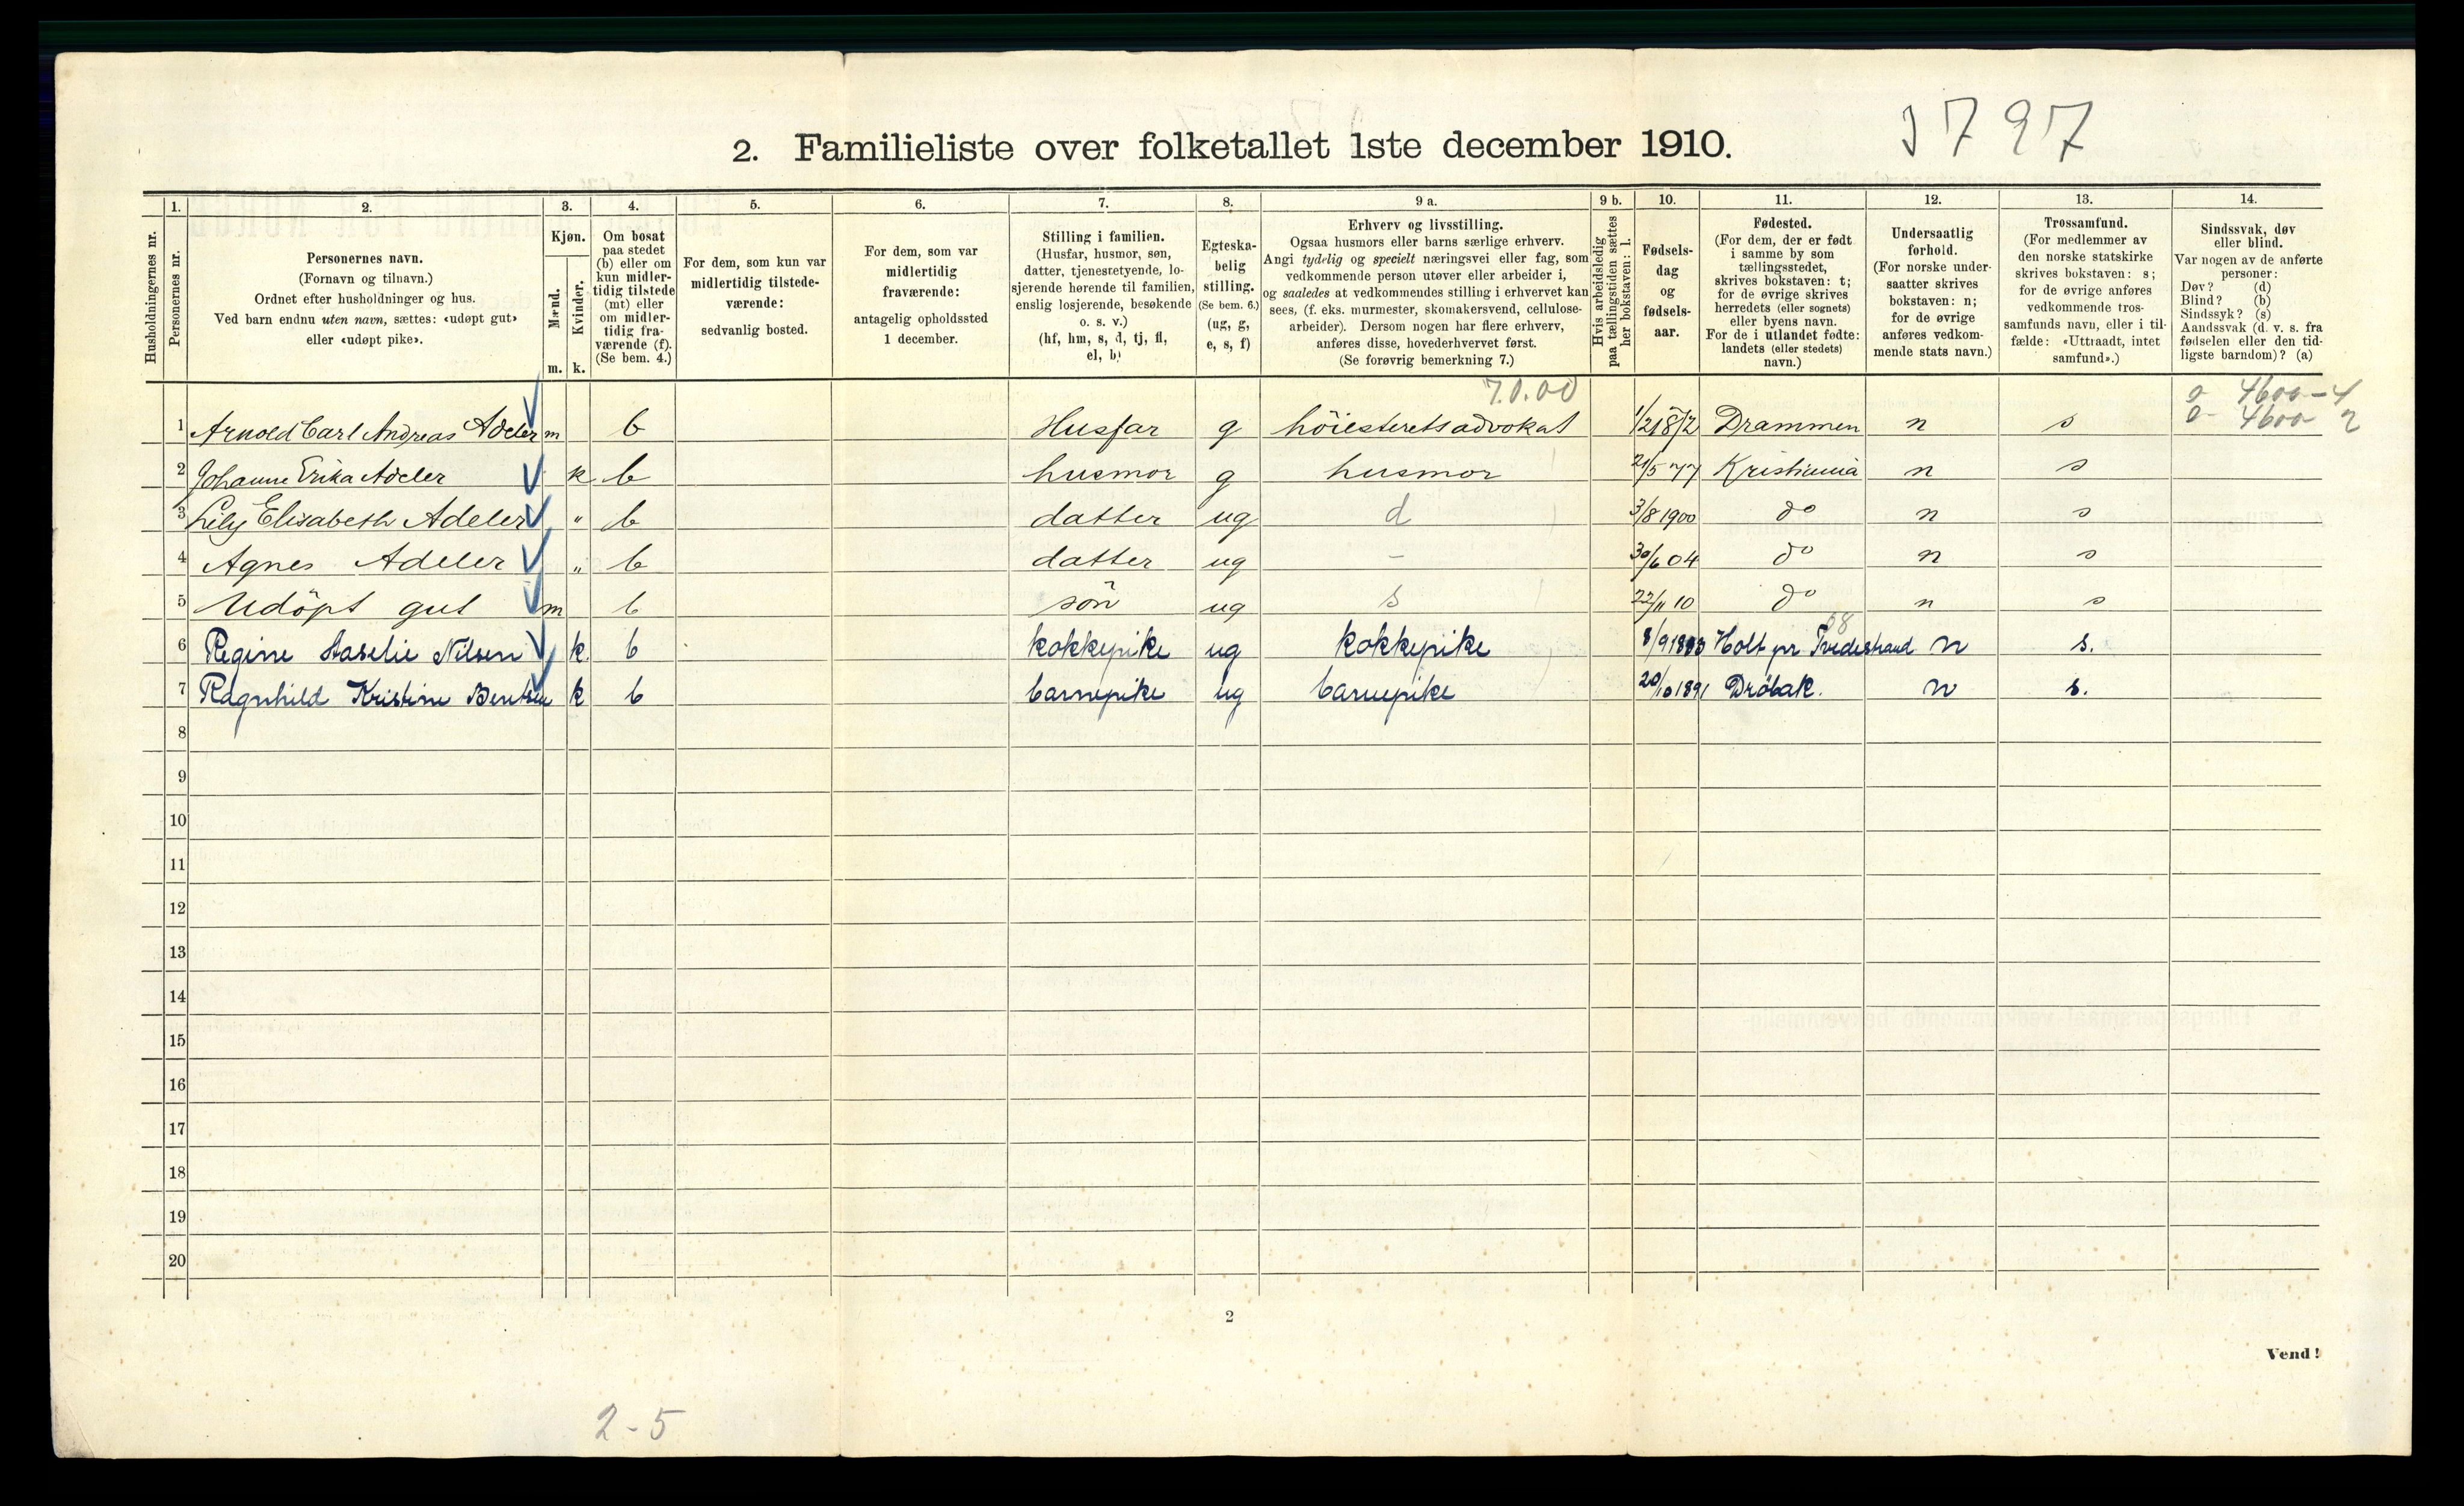 3797
2. Familieliste over folketallet 1ste december 1910.
1. 2. 3. 4. 5. 6. 7. 8. 9 a. 9 b. 10. 11. 12. 13. 14.
Husholdningernes nr.
Personernes nr.
Personernes navn.
(Fornavn og tilnavn.)
Ordnet efter husholdninger og hus.
Ved barn endnu uten navn, sættes: «udøpt gut»
eller «udøpt pike».
Kjøn.
Mænd. Kvinder.
m. k.
Om bosat
paa stedet
(b) eller om
kun midler-
tidig tilstede
(mt) eller
om midler-
tidig fra-
værende (f).
(Se bem. 4.)
For dem, som kun var
midlertidig tilstede-
værende:
sedvanlig bosted.
For dem, som var
midlertidig
fraværende:
antagelig opholdssted
1 december.
Stilling i familien.
(Husfar, husmor, søn,
datter, tjenestetyende, lo-
sjerende hørende til familien,
enslig losjerende, besøkende
o. s. v.)
(hf, hm, s, d, tj, fl,
el, b)
Egteska-
belig
stilling.
(Se bem. 6.)
(ug, g,
e, s, f)
Erhverv og livsstilling.
Ogsaa husmors eller barns særlige erhverv.
Angi tydelig og specielt næringsvei eller fag, som
vedkommende person utøver eller arbeider i,
og saaledes at vedkommendes stilling i erhvervet kan
sees, (f. eks. murmester, skomakersvend, cellulose-
arbeider). Dersom nogen har flere erhverv,
anføres disse, hovederhvervet først.
(Se forøvrig bemerkning 7.)
Hvis arbeidsledig
paa tællingstiden sættes
her bokstaven: l.
Fødsels-
dag
og
fødsels-
aar.
Fødested.
(For dem, der er født
i samme by som
tællingsstedet,
skrives bokstaven: t;
for de øvrige skrives
herredets (eller sognets)
eller byens navn.
For de i utlandet fødte:
landets (eller stedets)
navn.)
Undersaatlig
forhold.
(For norske under-
saatter skrives
bokstaven: n;
for de øvrige
anføres vedkom-
mende stats navn.)
Trossamfund.
(For medlemmer av
den norske statskirke
skrives bokstaven: s;
for de øvrige anføres
vedkommende tros-
samfunds navn, eller i til-
fælde: «Uttraadt, intet
samfund».)
Sindssvak, døv
eller blind.
Var nogen av de anførte
personer:
Døv? (d)
Blind? (b)
Sindssyk? (s)
Aandssvak (d. v. s. fra
fødselen eller den tid-
ligste barndom)? (a)
7.0.00
4600-4
4600- 2
1 Arnold Carl Andreas Adeler m b Husfar g höiesteretsadvokat 1/2 1872 Drammen n s
2 Johanne Erika Adeler k b husmor g husmor 21/5 77 Kristiania n s
3 Lily Elisabeth Adeler " b datter ug d 3/8 1900 do n s
4 Agnes Adeler " b datter ug - 30/6 04 do n s
5 Udöpt gut m b sön ug s 22/11 10 do n s
68
6 Regine Aaselie Nilsen k b kokkepike ug kokkepike 8/9 1883 Holt pr Tvedestrand n s.
7 Ragnhild Kristine Bentsen k b barnepike ug barnepike 20/10 1891 Dröbak. n s.
8
9
10
11
12
13
14
15
16
17
18
19
20
2
Vend!
2-5